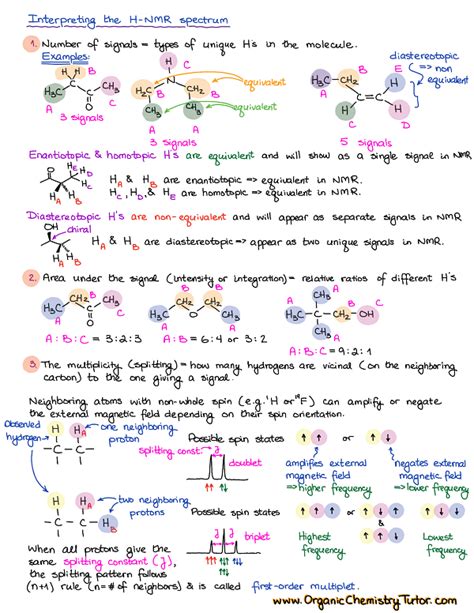 Interpreting the H-NMR spectrum
1. Number of signals = types of unique H's in the molecule.
Examples:
H H B
H₃C CH₃
A O C
3 signals
C
H
N B
H₃C CH₃
H₃C CH₃
A
3 signals
equivalent
equivalent
diastereotopic
=> non
equivalent
B
CH₂ H E
H₃C C=C H
A H D
C
5 signals
Enantiotopic & homotopic H's are equivalent and will show as a single signal in NMR
O H_C
H_D
H_E
H_A H_B
H_A & H_B are enantiotopic => equivalent in NMR.
H_C, H_D, & H_E are homotopic => equivalent in NMR.
Diastereotopic H's are non-equivalent and will appear as separate signals in NMR
OH chiral
H_A H_B
H_A & H_B are diastereotopic => appear as two unique signals in NMR.
2. Area under the signal (intensity or integration) = relative ratios of different H's
B
H₃C CH₂ CH₃
A O C
A:B:C = 3:2:3
B B
H₃C CH₂ O CH₂ CH₃
A A
A:B = 6:4 or 3:2
A
CH₃ B C
H₃C CH₂ OH
CH₃
A A
A:B:C = 9:2:1
3. The multiplicity (splitting) = how many hydrogens are vicinal (on the neighboring
carbon) to the one giving a signal.
Neighboring atoms with non-whole spin (e.g. ¹H or ¹⁹F) can amplify or negate
the external magnetic field depending on their spin orientation.
Observed
hydrogen
H H_A
C C
one neighboring
proton
Possible spin states
splitting const. J
doublet
↑ ↑ or ↑ ↓
amplifies external
magnetic field
=> higher frequency
negates external
magnetic field
=> lower frequency
H H_A
C C
H_B
two neighboring
protons
Possible spin states
J J
triplet
or
&
Highest
frequency
Lowest
frequency
When all protons give the
same splitting constant (J),
the splitting pattern follows
(n+1) rule (n=# of neighbors) & is called first-order multiplet.
www.OrganicChemistryTutor.com